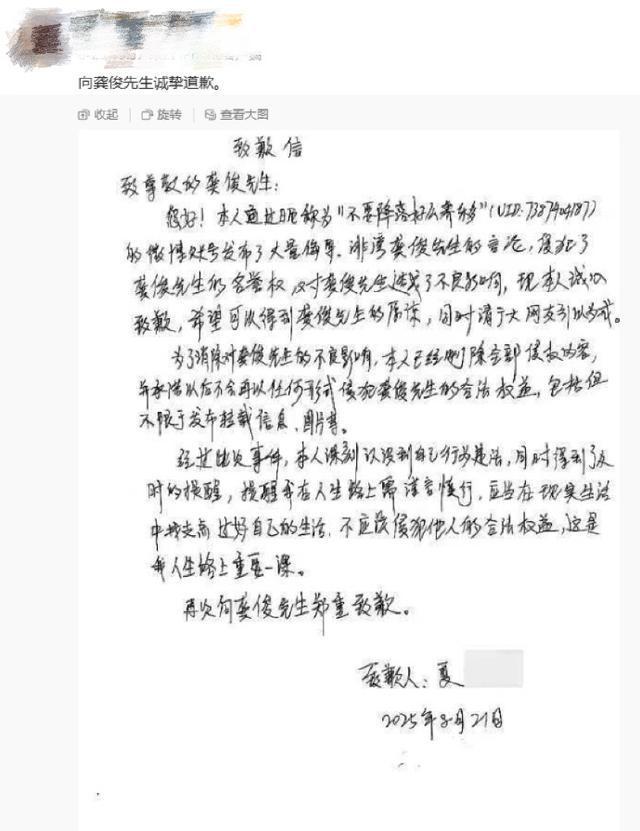 向龚俊先生诚挚道歉。
收起 旋转 查看大图
致歉信
致尊敬的龚俊先生：
您好！本人通过昵称为“不要降落好么寄钱”（UID:7387904187）
的微博账号发布了大量侮辱、诽谤龚俊先生的言论，侵犯了
龚俊先生的名誉权，对龚俊先生造成了不良影响，现本人诚以
致歉，希望可以得到龚俊先生的原谅，同时请广大网友引以为戒。
为了消除对龚俊先生的不良影响，本人已经删除全部侵权内容，
并承诺以后不会再以任何形式侵犯龚俊先生的合法权益，包括但
不限于发布转载信息、图片等。
经过此次事件，本人深刻认识到自己行为违法，同时得到了及
时的提醒，提醒我在人生路上需谨言慎行，应当在现实生活
中找支点过好自己的生活，不应该侵犯他人的合法权益，这是
我人生路上重要一课。
再次向龚俊先生郑重致歉。
致歉人：夏
2025年8月21日